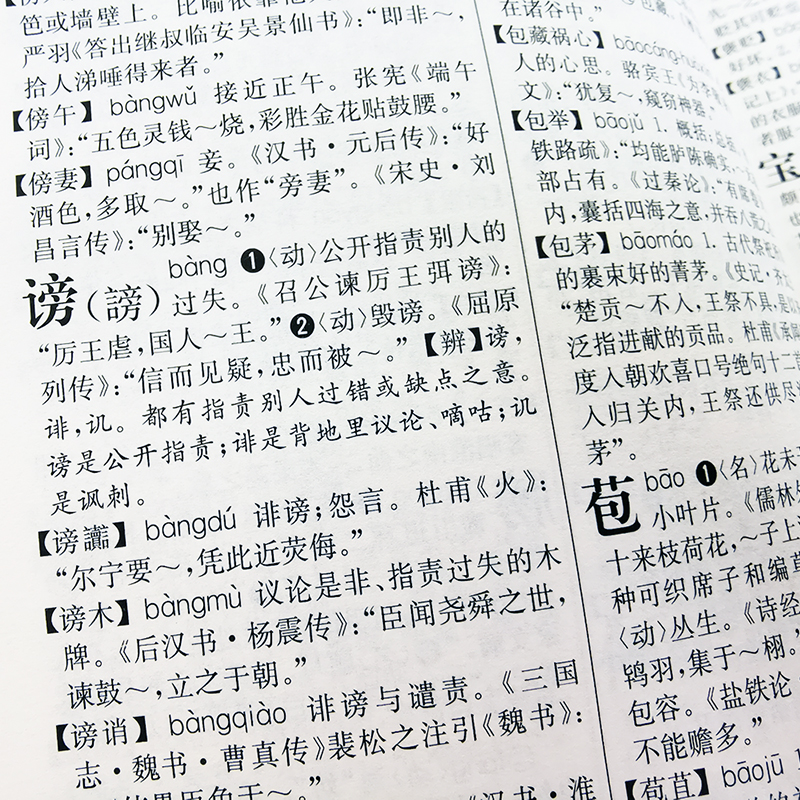 笆或墙壁上。比喻依靠他
严羽《答出继叔临安吴景仙书》：“即非～，
拾人涕唾得来者。”
【傍午】bàngwǔ 接近正午。张宪《端午
词》：“五色灵钱～烧，彩胜金花贴鼓腰。”
【傍妻】pángqī 妾。《汉书·元后传》：“好
酒色，多取～。”也作“旁妻”。《宋史·刘
昌言传》：“别娶～。”
谤（謗） bàng ❶〈动〉公开指责别人的
过失。《召公谏厉王弭谤》：
“厉王虐，国人～王。”❷〈动〉毁谤。《屈原
列传》：“信而见疑，忠而被～。”【辨】谤，
诽，讥。都有指责别人过错或缺点之意。
谤是公开指责；诽是背地里议论、嘀咕；讥
是讽刺。
【谤讟】bàngdú 诽谤；怨言。杜甫《火》：
“尔宁要～，凭此近荧侮。”
【谤木】bàngmù 议论是非、指责过失的木
牌。《后汉书·杨震传》：“臣闻尧舜之世，
谏鼓～，立之于朝。”
【谤诮】bàngqiào 诽谤与谴责。《三国
志·魏书·曹真传》裴松之注引《魏书》：
《汉书·淮
在诸谷中。”
【包藏祸心】bāocáng-huò
人的心思。骆宾王《为
文》：“犹复～，窥窃神器。”
【包举】bāojǔ 1. 概括；总括。
铁路疏》：“均能胪陈确实，
部占有。《过秦论》：“有席卷
内，囊括四海之意，并吞八荒之
【包茅】bāomáo 1. 古代祭祀
的裹束好的菁茅。《史记·齐太
“楚贡～不入，王祭不具，是以
泛指进献的贡品。杜甫《承闻
度入朝欢喜口号绝句十二首
人归关内，王祭还供尽
茅”。
苞 bāo ❶〈名〉花未
小叶片。《儒林外
十来枝荷花，～子上
种可织席子和编草
〈动〉丛生。《诗经
鸨羽，集于～栩。”
包容。《盐铁论·
不能赡多。”
【苞苴】bāojū 1
宝